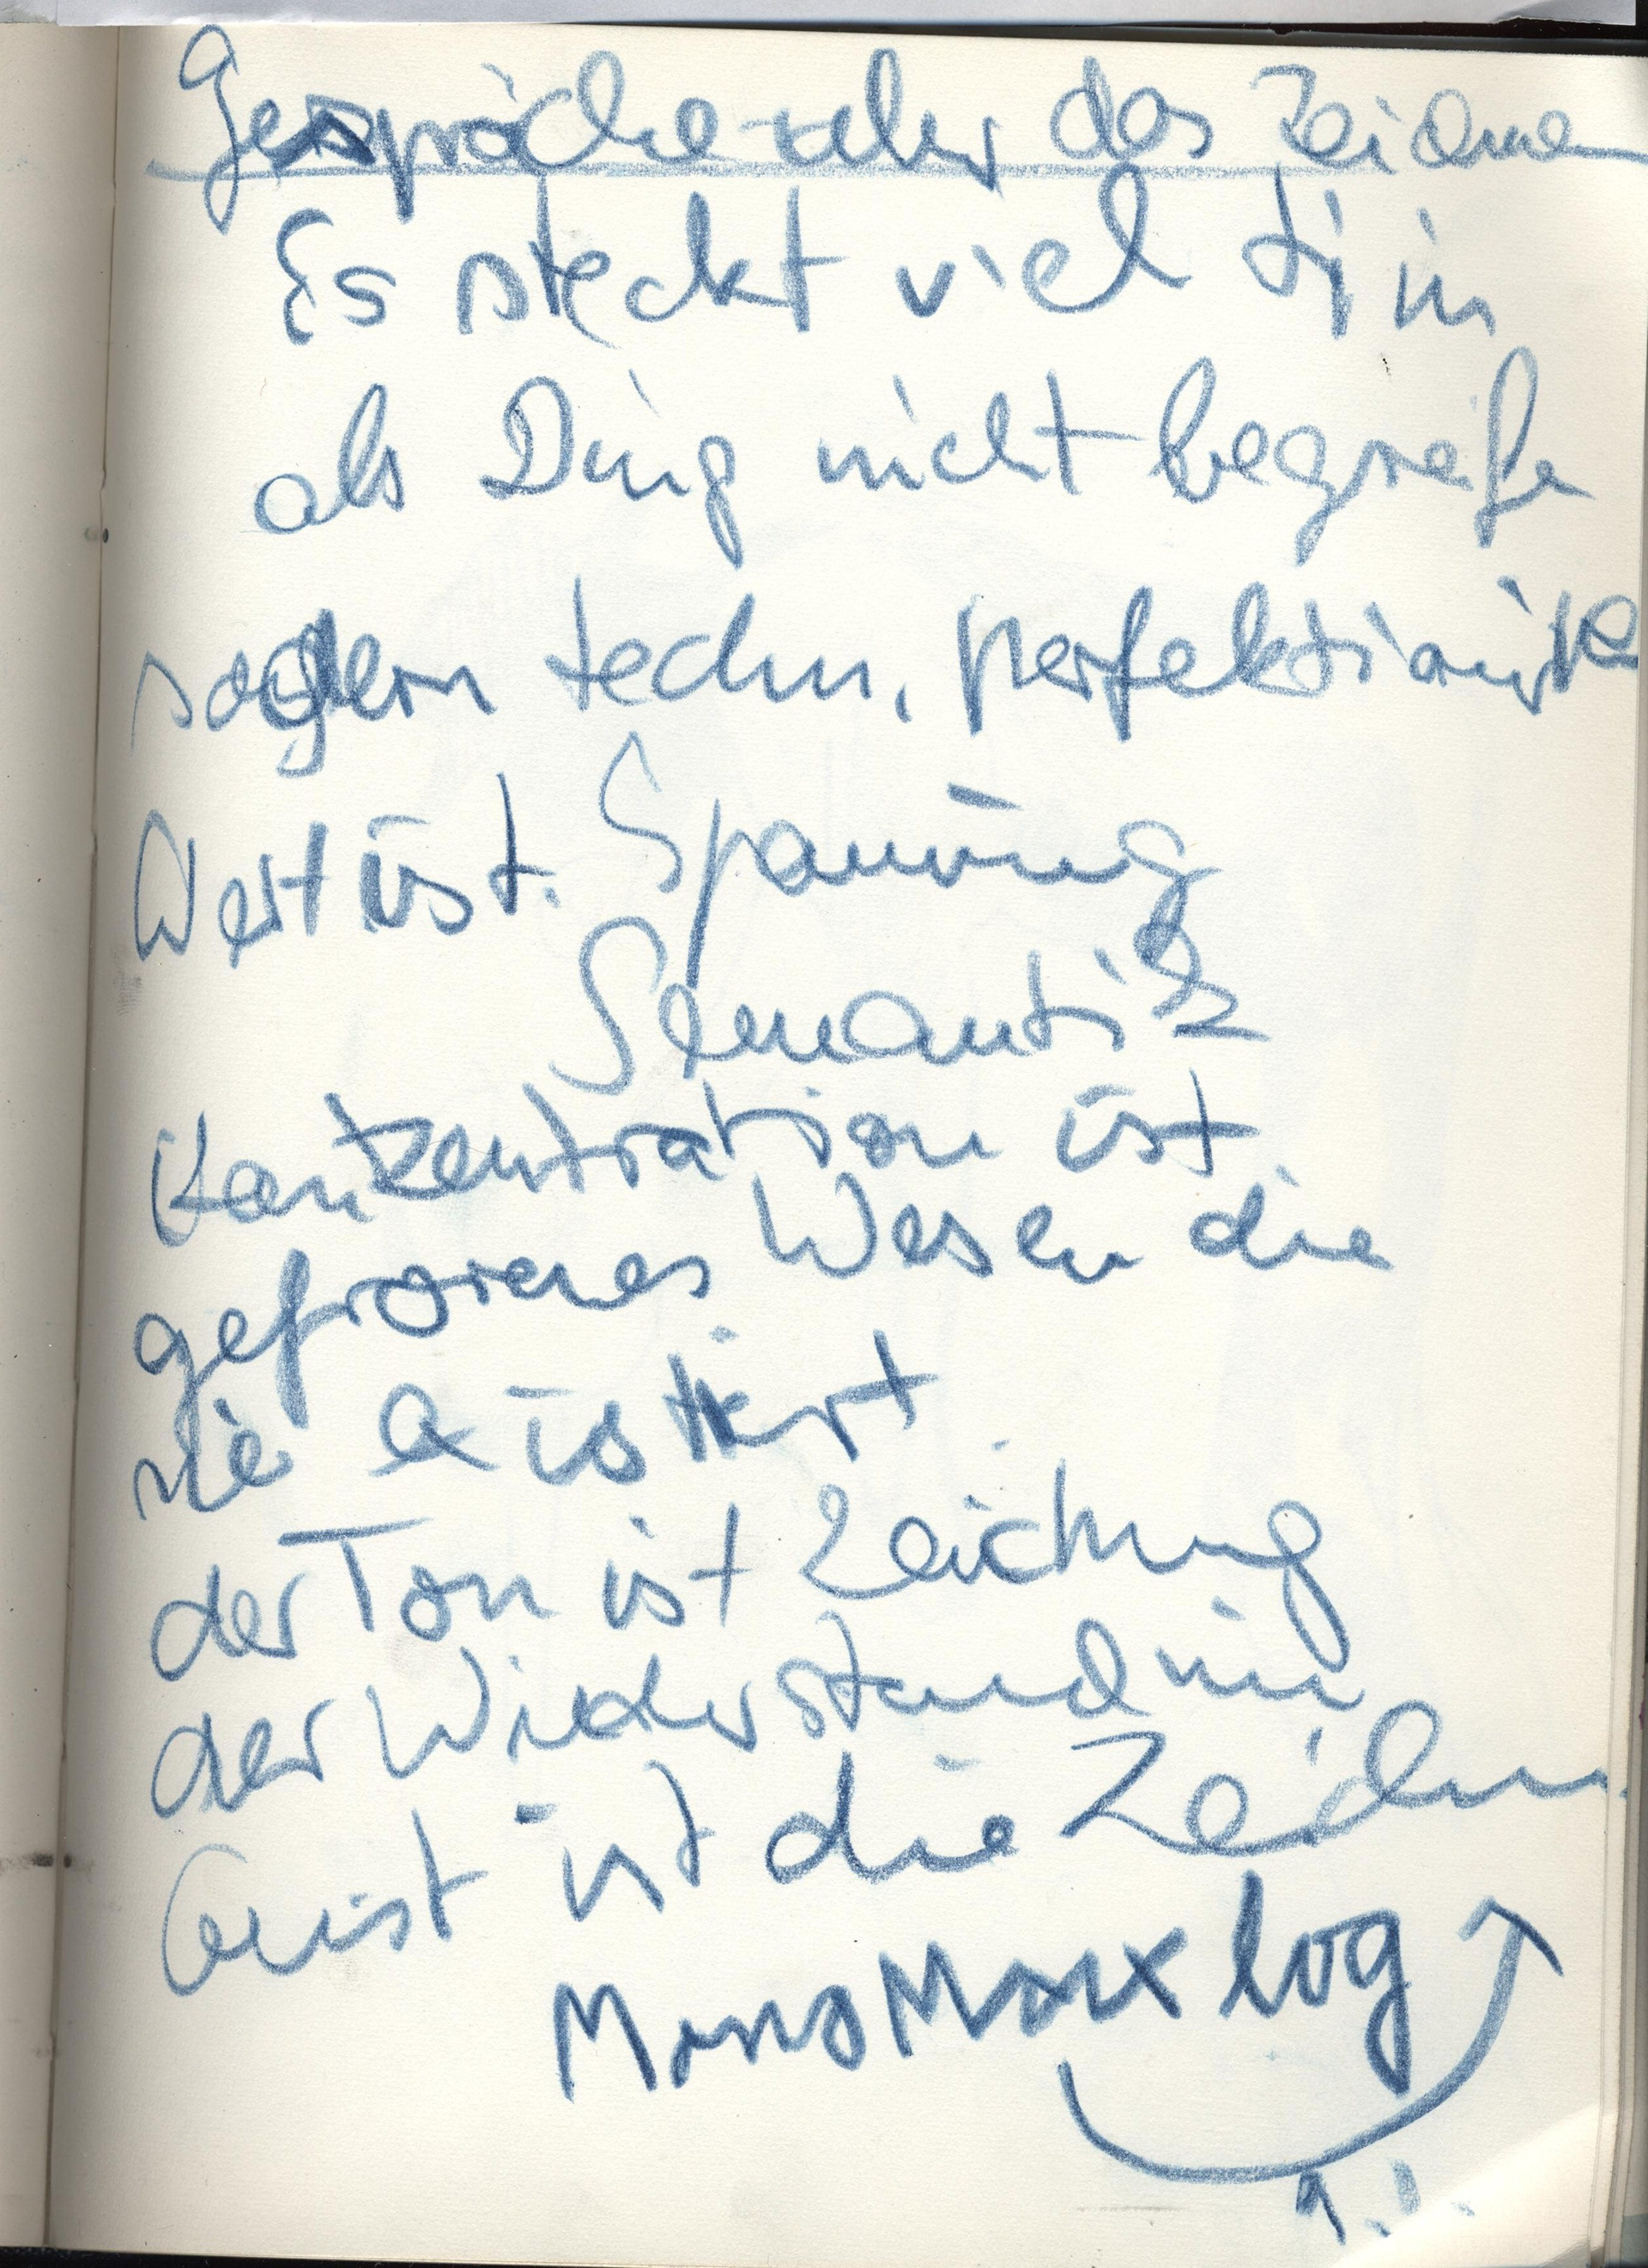 Gespräche über das Zeichnen
Es steckt viel drin
als Ding nicht begreife
sondern techn. perfektionist
Wert ist. Spannung
Semantik
Konzentration ist
gefrorenes Wesen die
nie existiert
der Ton ist Zeichung
der Widerstand im
Geist ist die Zeichn
MonoMarxlog